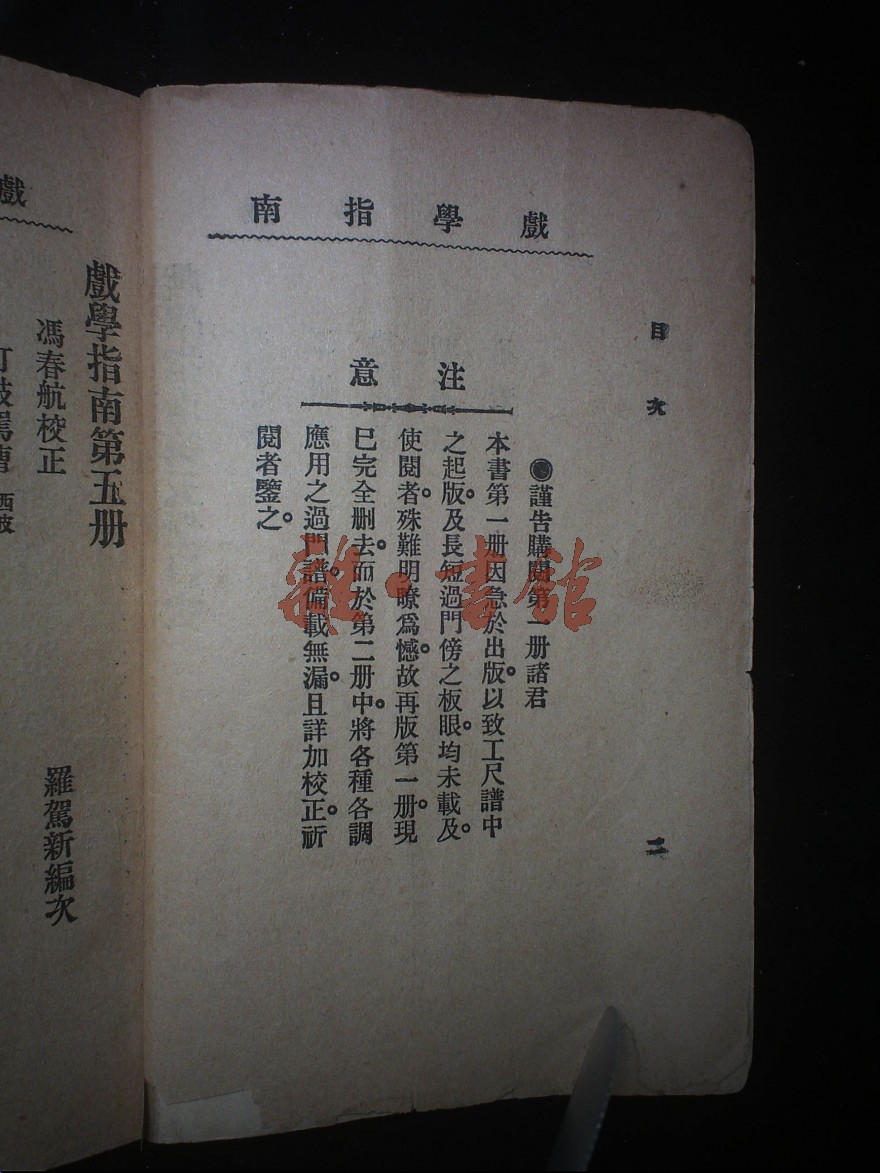 戲學指南
目次
二
注意
◉謹告購閱第一册諸君
本書第一册因急於出版。以致工尺譜中
之起版。及長短過門傍之板眼。均未載及。
使閱者。殊難明瞭爲憾。故再版第一册。現
已完全删去。而於第二册中。將各種各調
應用之過門譜。備載無漏。且詳加校正。祈
閱者鑒之。
雜·書舘
戲
戲學指南第五册
馮春航校正
羅駕新編次
打鼓罵曹 西皮